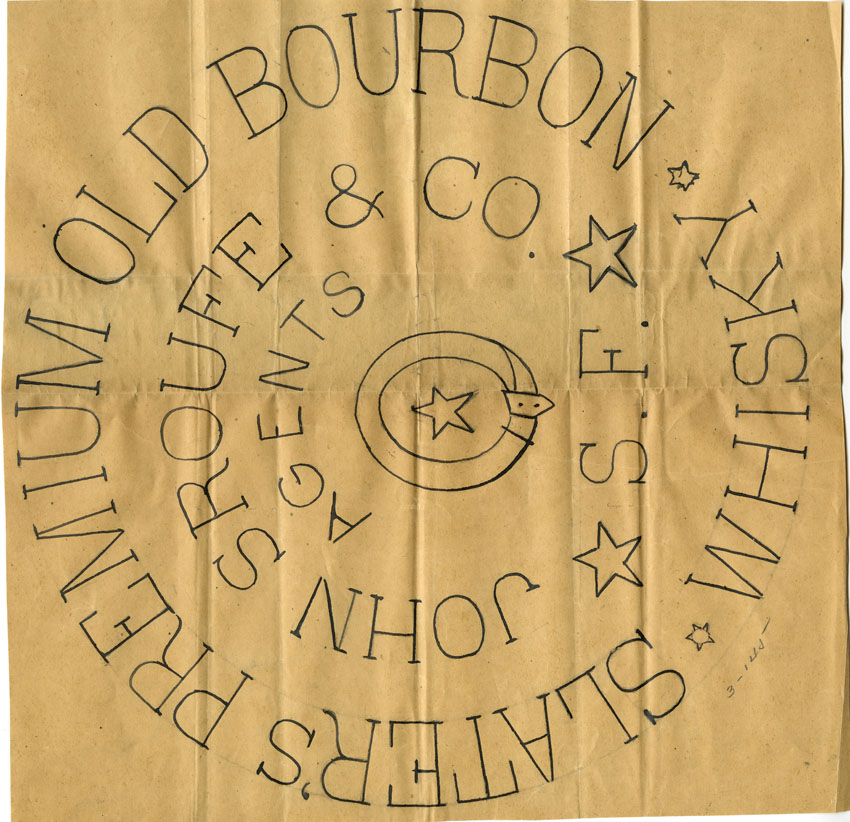 SLATER'S PREMIUM OLD BOURBON
WHISKY
JOHN SROUFE & CO.
AGENTS
S. F.